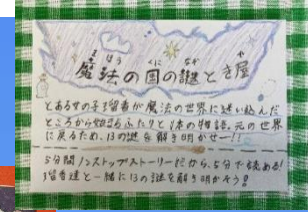 まほう くに なぞ や
魔法の国の謎とき屋
とある女の子3留香が魔法の世界に迷い込んだ
ところから始まるふたりと1冰の物語。元の世界
に戻るため、13の謎を解き明かせー!!
5分間ノンストップストーリーだから、5分で読める!
3留香達と一緒に13の謎を解き明かそう!